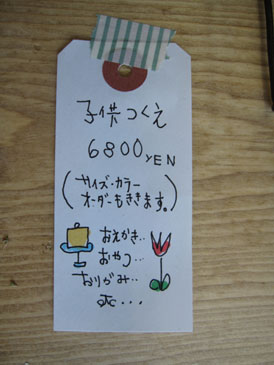 子供つくえ
6800YEN
(サイズ・カラー
オーダーもききます。)
おえかき‥
おやつ…
おりがみ…
etc...